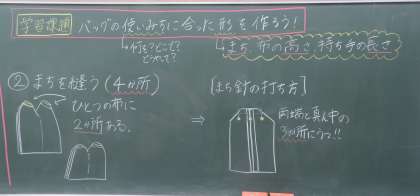 学習課題 バッグの使いみちに合った形を作ろう!
何を?どこで?
どうやって?
まち、布の高さ、持ち手の長さ
② まちを縫う(4ヶ所)
ひとつの布に
2ヶ所ある。
⇒
[まち針の打ち方]
両端と真ん中の
3ヶ所にうつ!!